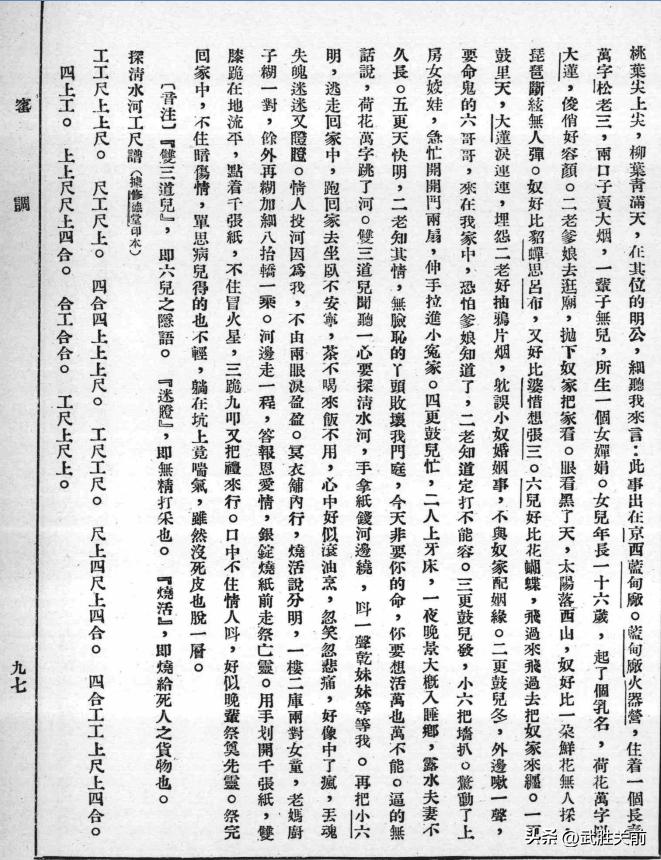 桃葉尖上尖，柳葉靑滿天，在其位的明公，細聽我來言：此事出在京西藍甸廠。藍甸廠火器營，住着一個長靑
萬字松老三，兩口子賣大烟，一輩子無兒，所生一個女嬋娟。女兒年長一十六歲，起了個乳名，荷花萬字叫
大蓮，俊俏好容顏。二老爹娘去逛廟，拋下奴家把家看。眼看黑了天，太陽落西山，奴好比一朵鮮花無人採，
琵琶斷絃無人彈。奴好比貂蟬思呂布，又好比婆惜想張三。六兒好比花蝴蝶，飛過來飛過去把奴家來纏。一更
鼓里天，大蓮淚連連，埋怨二老好抽鴉片烟，躭誤小奴婚姻事，不與奴家配姻緣。二更鼓兒冬，外邊嗽一聲，
要命鬼的六哥哥，來在我家中，恐怕爹娘知道了，二老知道定打不能容。三更鼓兒發，小六把墻扒。驚動了上
房女姣娃，急忙開開門兩扇，伸手拉進小寃家。四更鼓兒忙，二人上牙床，一夜晚景大槪入睡鄉，露水夫妻不
久長。五更天快明，二老知其情，無臉恥的丫頭敗壞我門庭，今天非要你的命，你要想活萬也萬不能。逼的無
話說，荷花萬字跳了河。雙三道兒聞聽一心要探淸水河，手拿紙錢河邊繞，呌一聲乾妹妹等等我。再把小六
明，逃走回家中，跑回家去坐臥不安寧，茶不喝來飯不用，心中好似滾油烹，忽笑忽悲痛，好像中了瘋，丟魂
失魄迷迷又瞪瞪。情人投河因爲我，不由兩眼淚盈盈。冥衣舖內行，燒活說分明，一樓二庫兩對女童，老媽廚
子糊一對，餘外再糊加細八抬轎一乘。河邊走一程，答報恩愛情，銀錠燒紙前走祭亡靈。用手划開千張紙，雙
膝跪在地流平，點着千張紙，不住冒火星，三跪九叩又把禮來行。口中不住情人呌，好似晚輩祭奠先靈。祭完
回家中，不住暗傷情，單思病兒得的也不輕，躺在坑上竟喘氣，雖然沒死皮也脫一層。
〔音注〕『雙三道兒』，卽六兒之隱語。『迷瞪』，卽無精打采也。『燒活』，卽燒給死人之貨物也。
探淸水河工尺譜（據修德堂印本）
工工尺上上尺。　尺工尺上。　四合四上上上尺。　工尺工尺。　尺上四尺上四合。　四合工工上尺上四合。
四上工。　上上尺尺上四合。　合工合合。　工尺上尺上。
窰調
九七
头条 @武胜关前